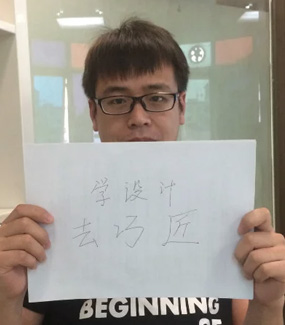 学设计
去巧匠
BEGINNING